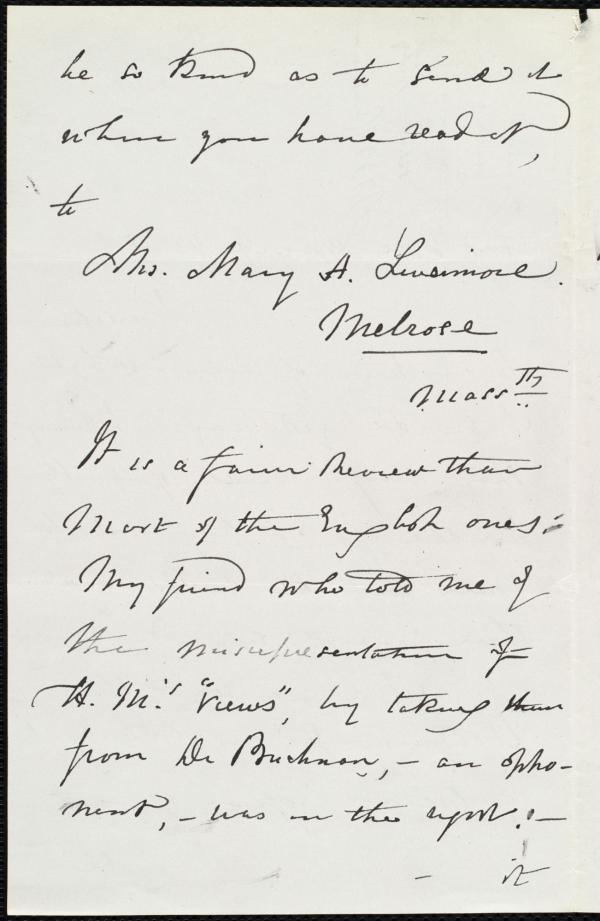 be so kind as to send it
when you have read it,
to
Mrs. Mary A. Livermore.
Melrose
Mass
It is a fairer Review than
Most of the English ones;
My friend who told me of
the misrepresentation of
H. M.'s "Views", by taking them
from Dr Buchnan, - an oppo-
nent, - was in the right; -
- it